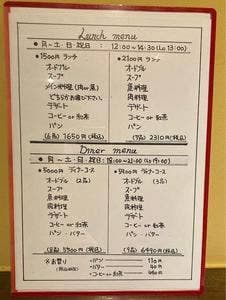 Lunch menu
● 月～土・日・祝日 : 12:00～14:30 (Lo 13:00)
● 1500円 ランチ
オードブル
スープ
メイン料理 (肉 or 魚)
どちらかお選び下さい。
デザート
コーヒー or 紅茶
パン
(6品) 1650円 (税込)
● 2100円 ランチ
オードブル
スープ
魚料理
肉料理
デザート
コーヒー or 紅茶
パン
(7品) 2310円 (税込)
Dinner menu
● 月～土・日・祝日 :
● 5000円 ディナーコース
オードブル (2品)
スープ
魚料理
肉料理
デザート
コーヒー or 紅茶
パン・バター
5500円 (税込)
ディナーコース
オードブル (3品)
スープ
魚料理
肉料理
デザート
コーヒー or 紅茶
パン・バター
(税込)
※お替り
・パン
・バター
・コーヒー or 紅茶